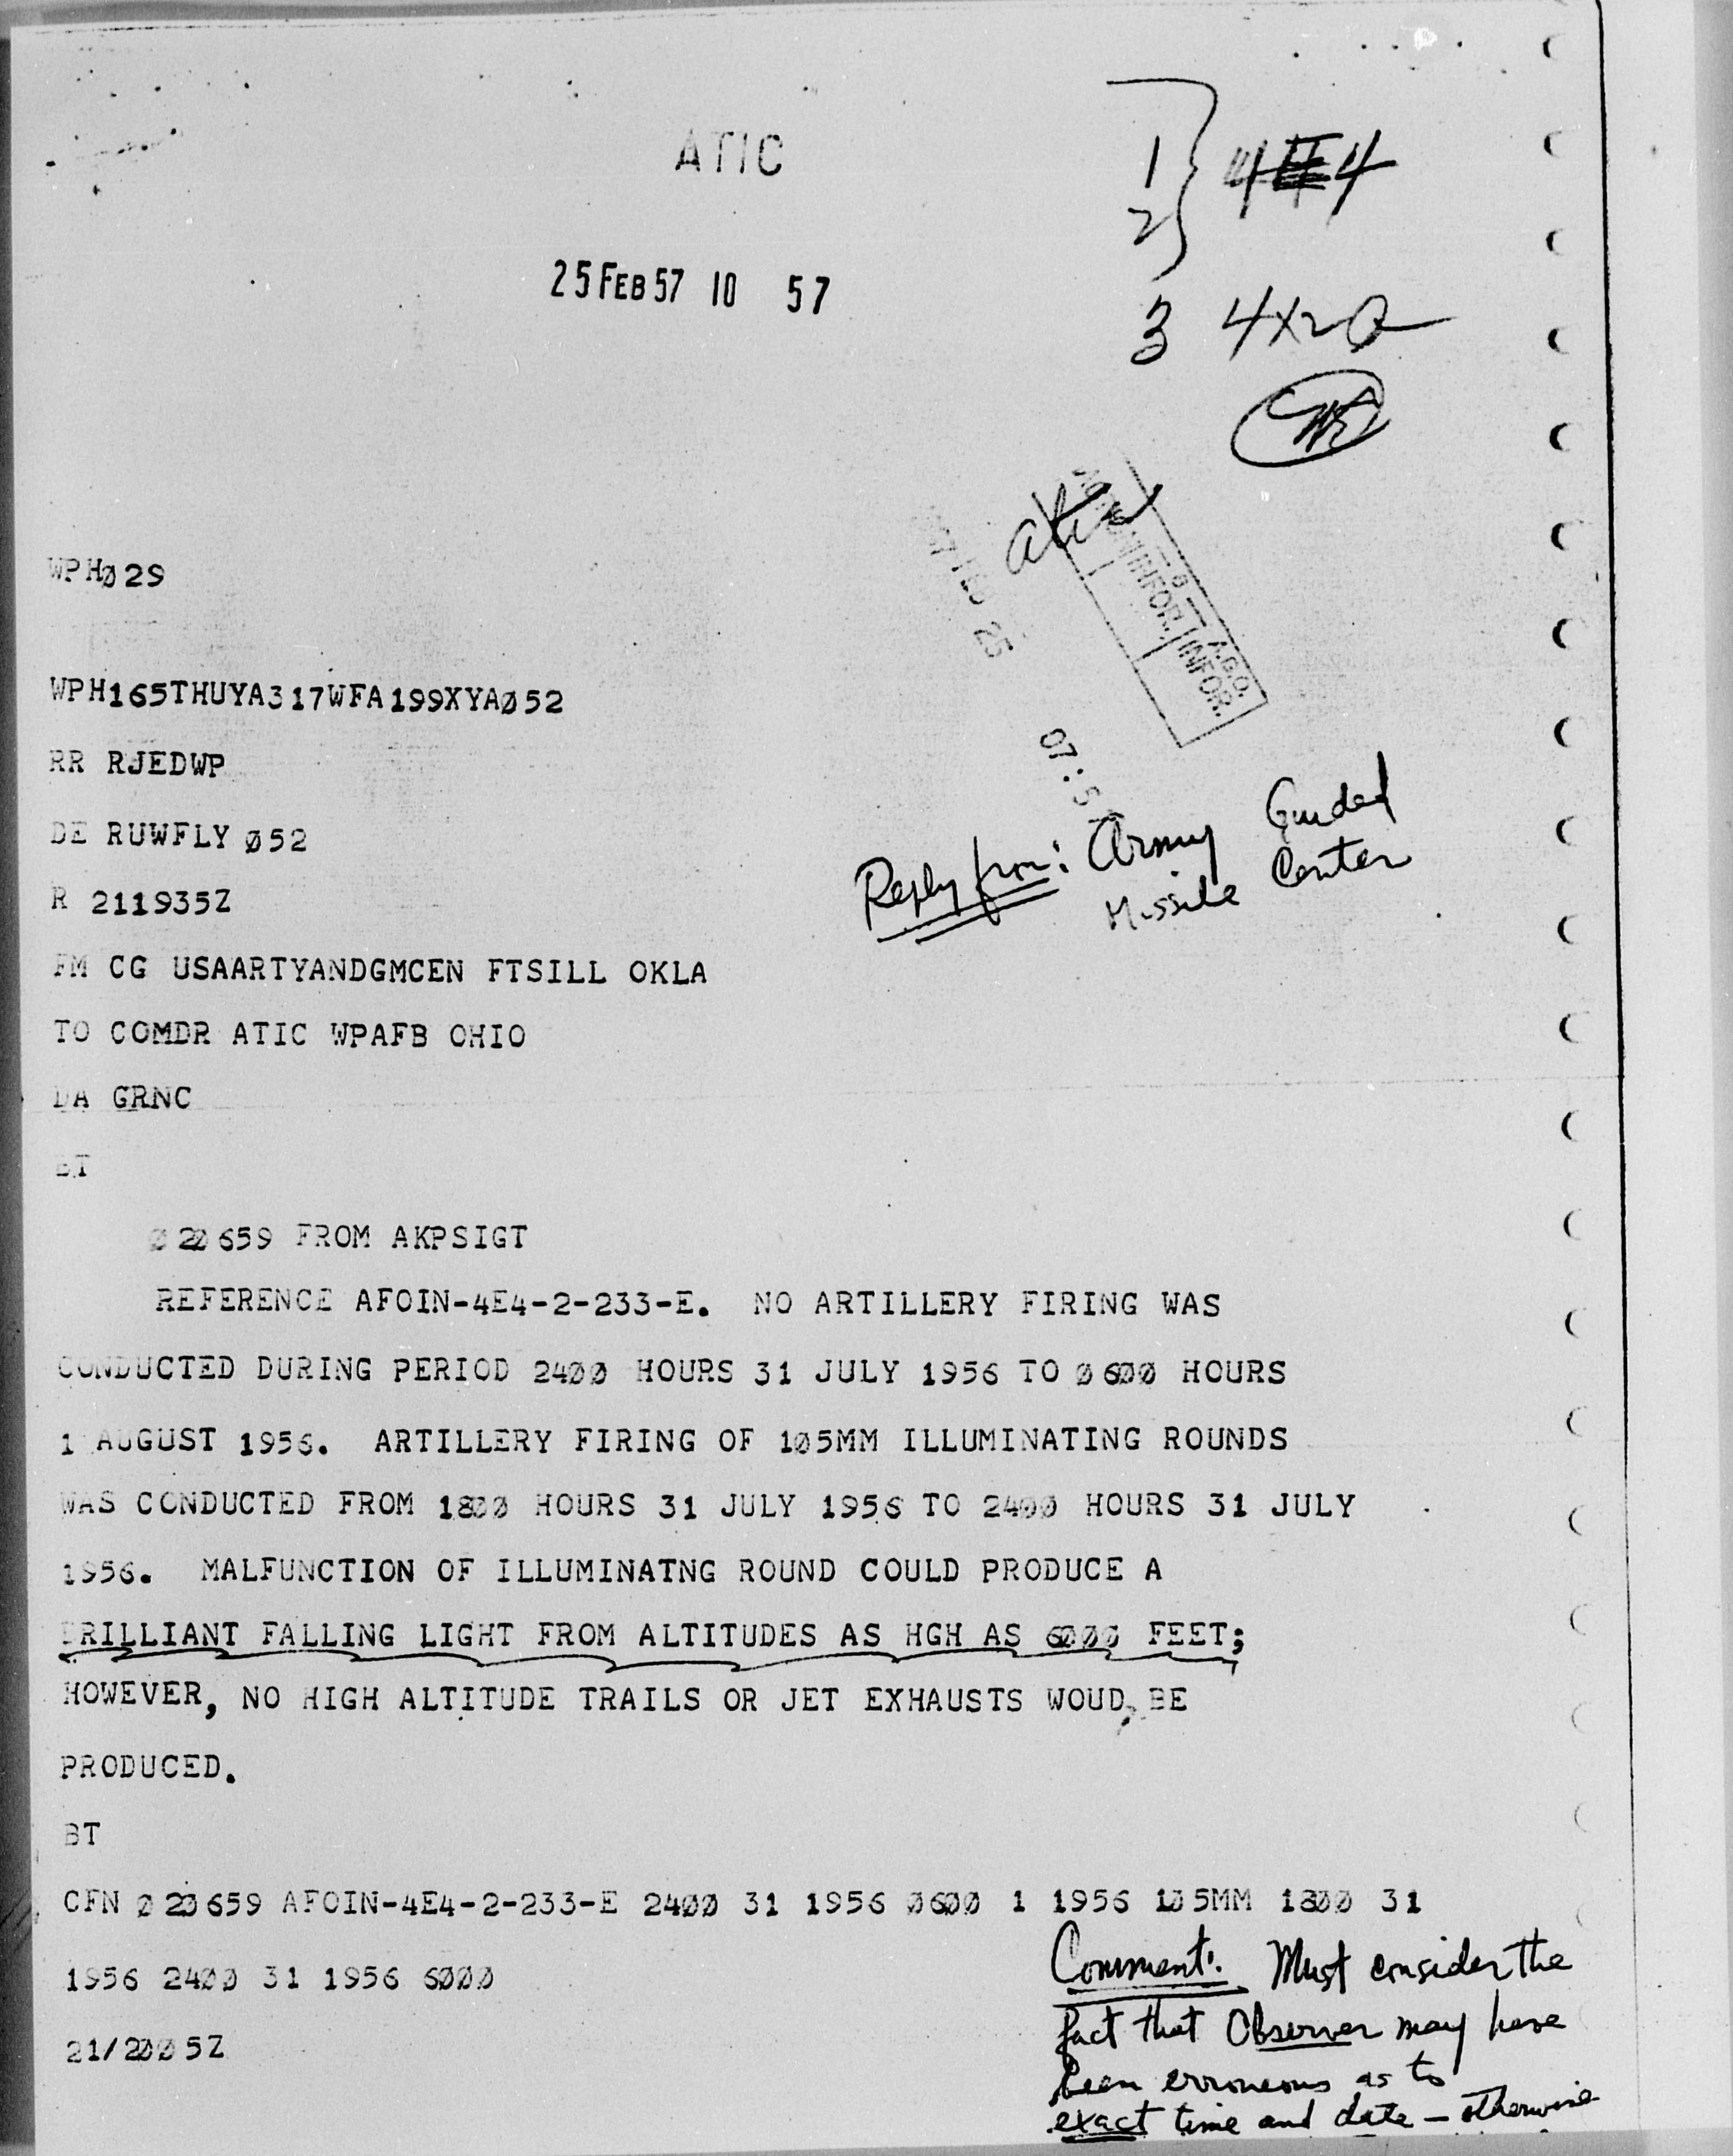 ATIC
1
2
4E4
25 FEB 57 10 57
3 4X2a
atic
INFOR. INFOR.
25
07:5
WPHØ29
WPH165THUYA317WFA199XYAØ52
RR RJEDWP
DE RUWFLY Ø52
R 211935Z
Reply from: Army Guided
Missile Center
FM CG USAARTYANDGMCEN FTSILL OKLA
TO COMDR ATIC WPAFB OHIO
DA GRNC
BT
Ø2Ø659 FROM AKPSIGT
REFERENCE AFOIN-4E4-2-233-E. NO ARTILLERY FIRING WAS
CONDUCTED DURING PERIOD 24ØØ HOURS 31 JULY 1956 TO Ø6ØØ HOURS
1 AUGUST 1956. ARTILLERY FIRING OF 1Ø5MM ILLUMINATING ROUNDS
WAS CONDUCTED FROM 18ØØ HOURS 31 JULY 1956 TO 24ØØ HOURS 31 JULY
1956. MALFUNCTION OF ILLUMINATNG ROUND COULD PRODUCE A
BRILLIANT FALLING LIGHT FROM ALTITUDES AS HGH AS 6ØØØ FEET;
HOWEVER, NO HIGH ALTITUDE TRAILS OR JET EXHAUSTS WOUD BE
PRODUCED.
BT
CFN Ø2Ø659 AFOIN-4E4-2-233-E 24ØØ 31 1956 Ø6ØØ 1 1956 1Ø5MM 18ØØ 31
1956 24ØØ 31 1956 6ØØØ
21/2ØØ5Z
Comment: Must consider the
fact that Observer may have
been erroneous as to
exact time and date — otherwise